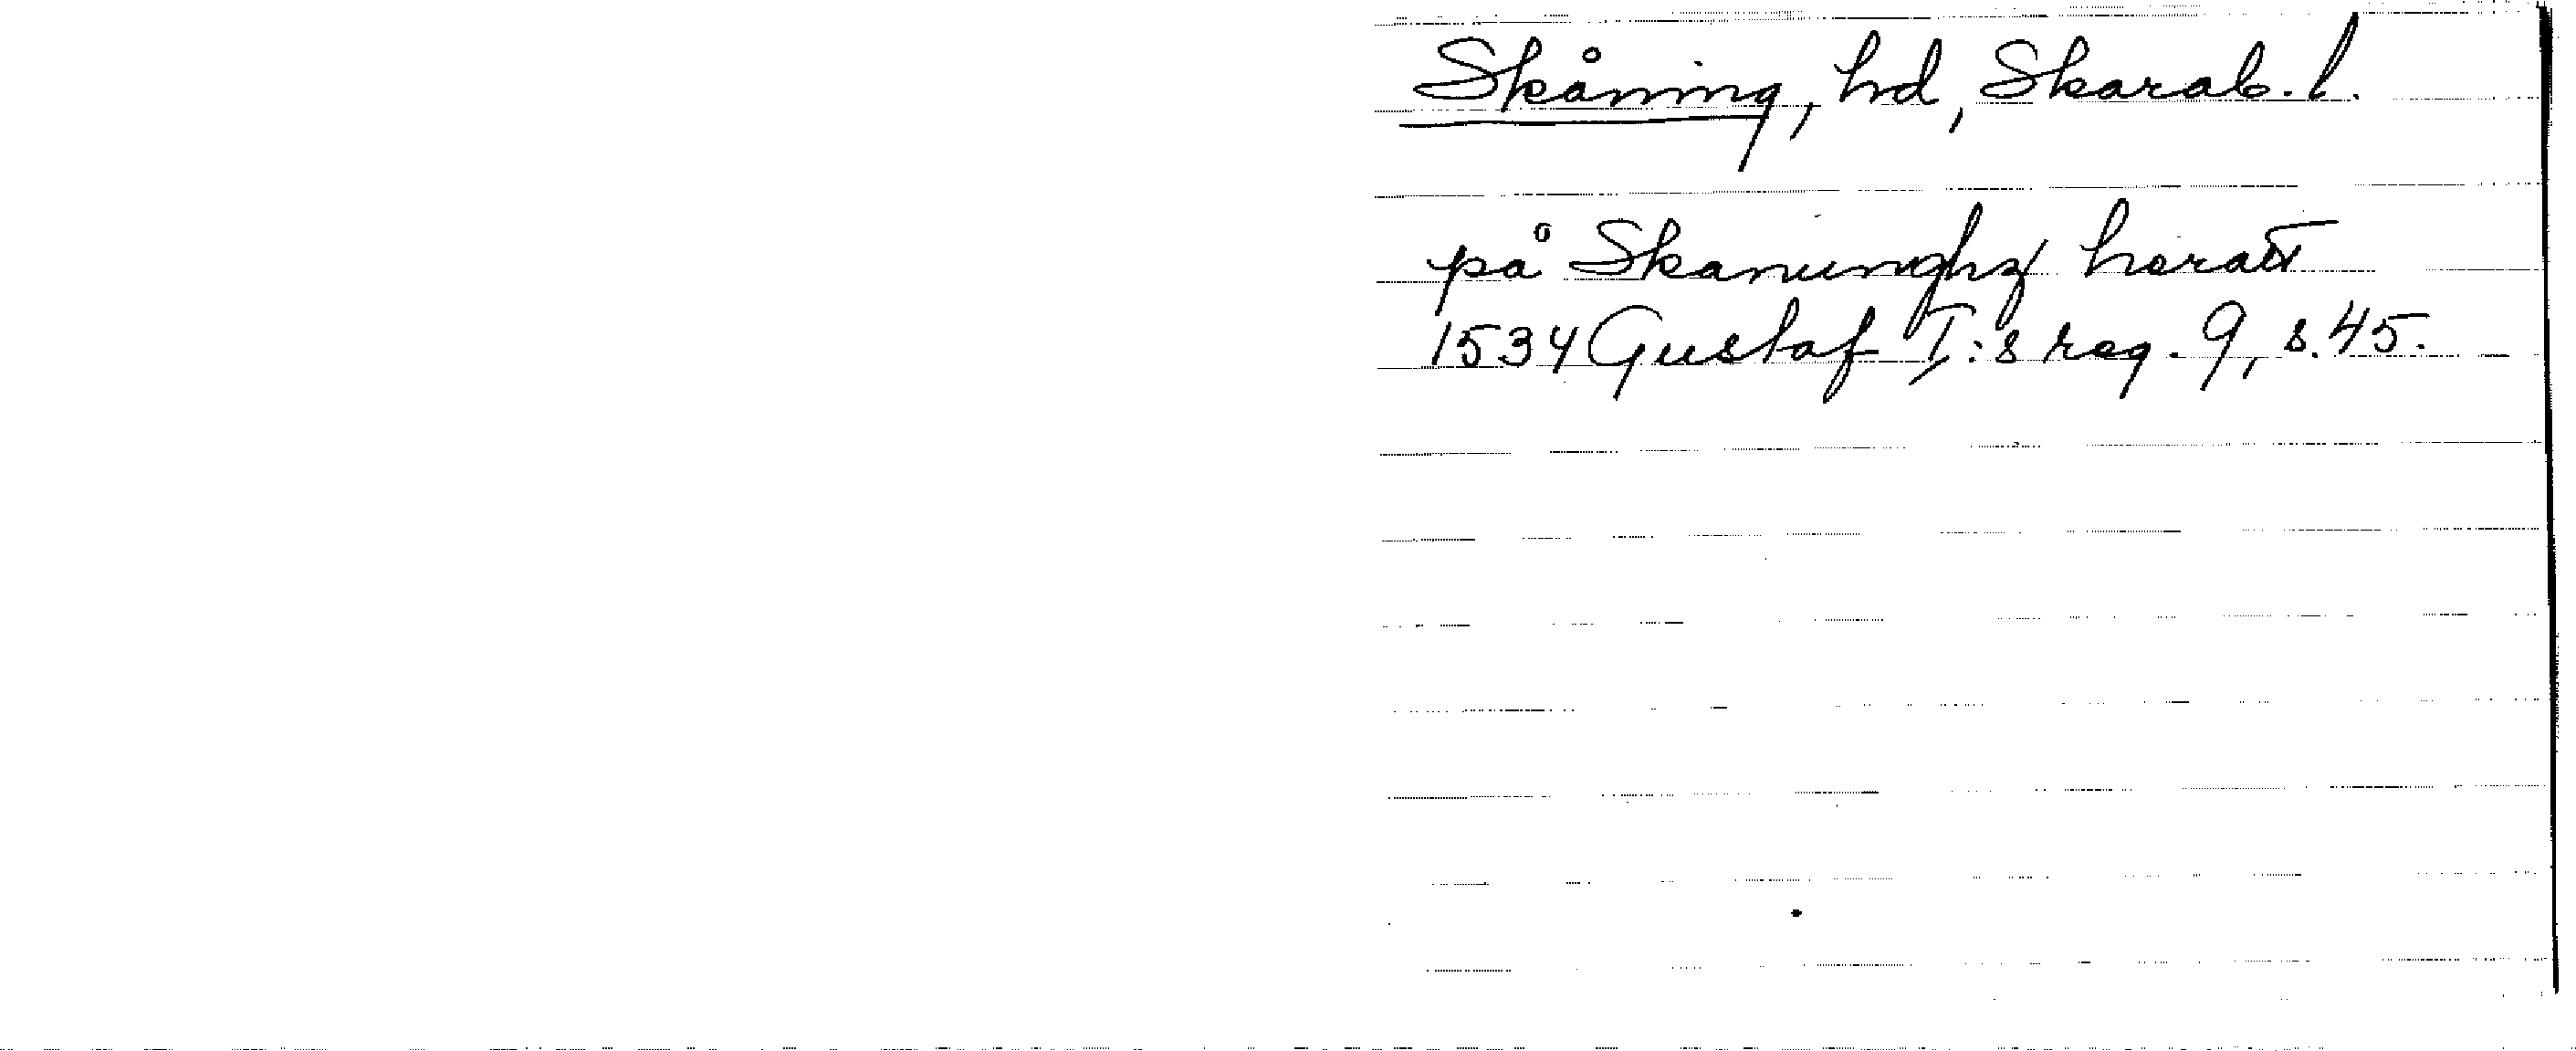 Skåning, hd, Skarab. l.
på Skanunghz heratt
1534 Gustaf I:s reg. 9, s. 45.